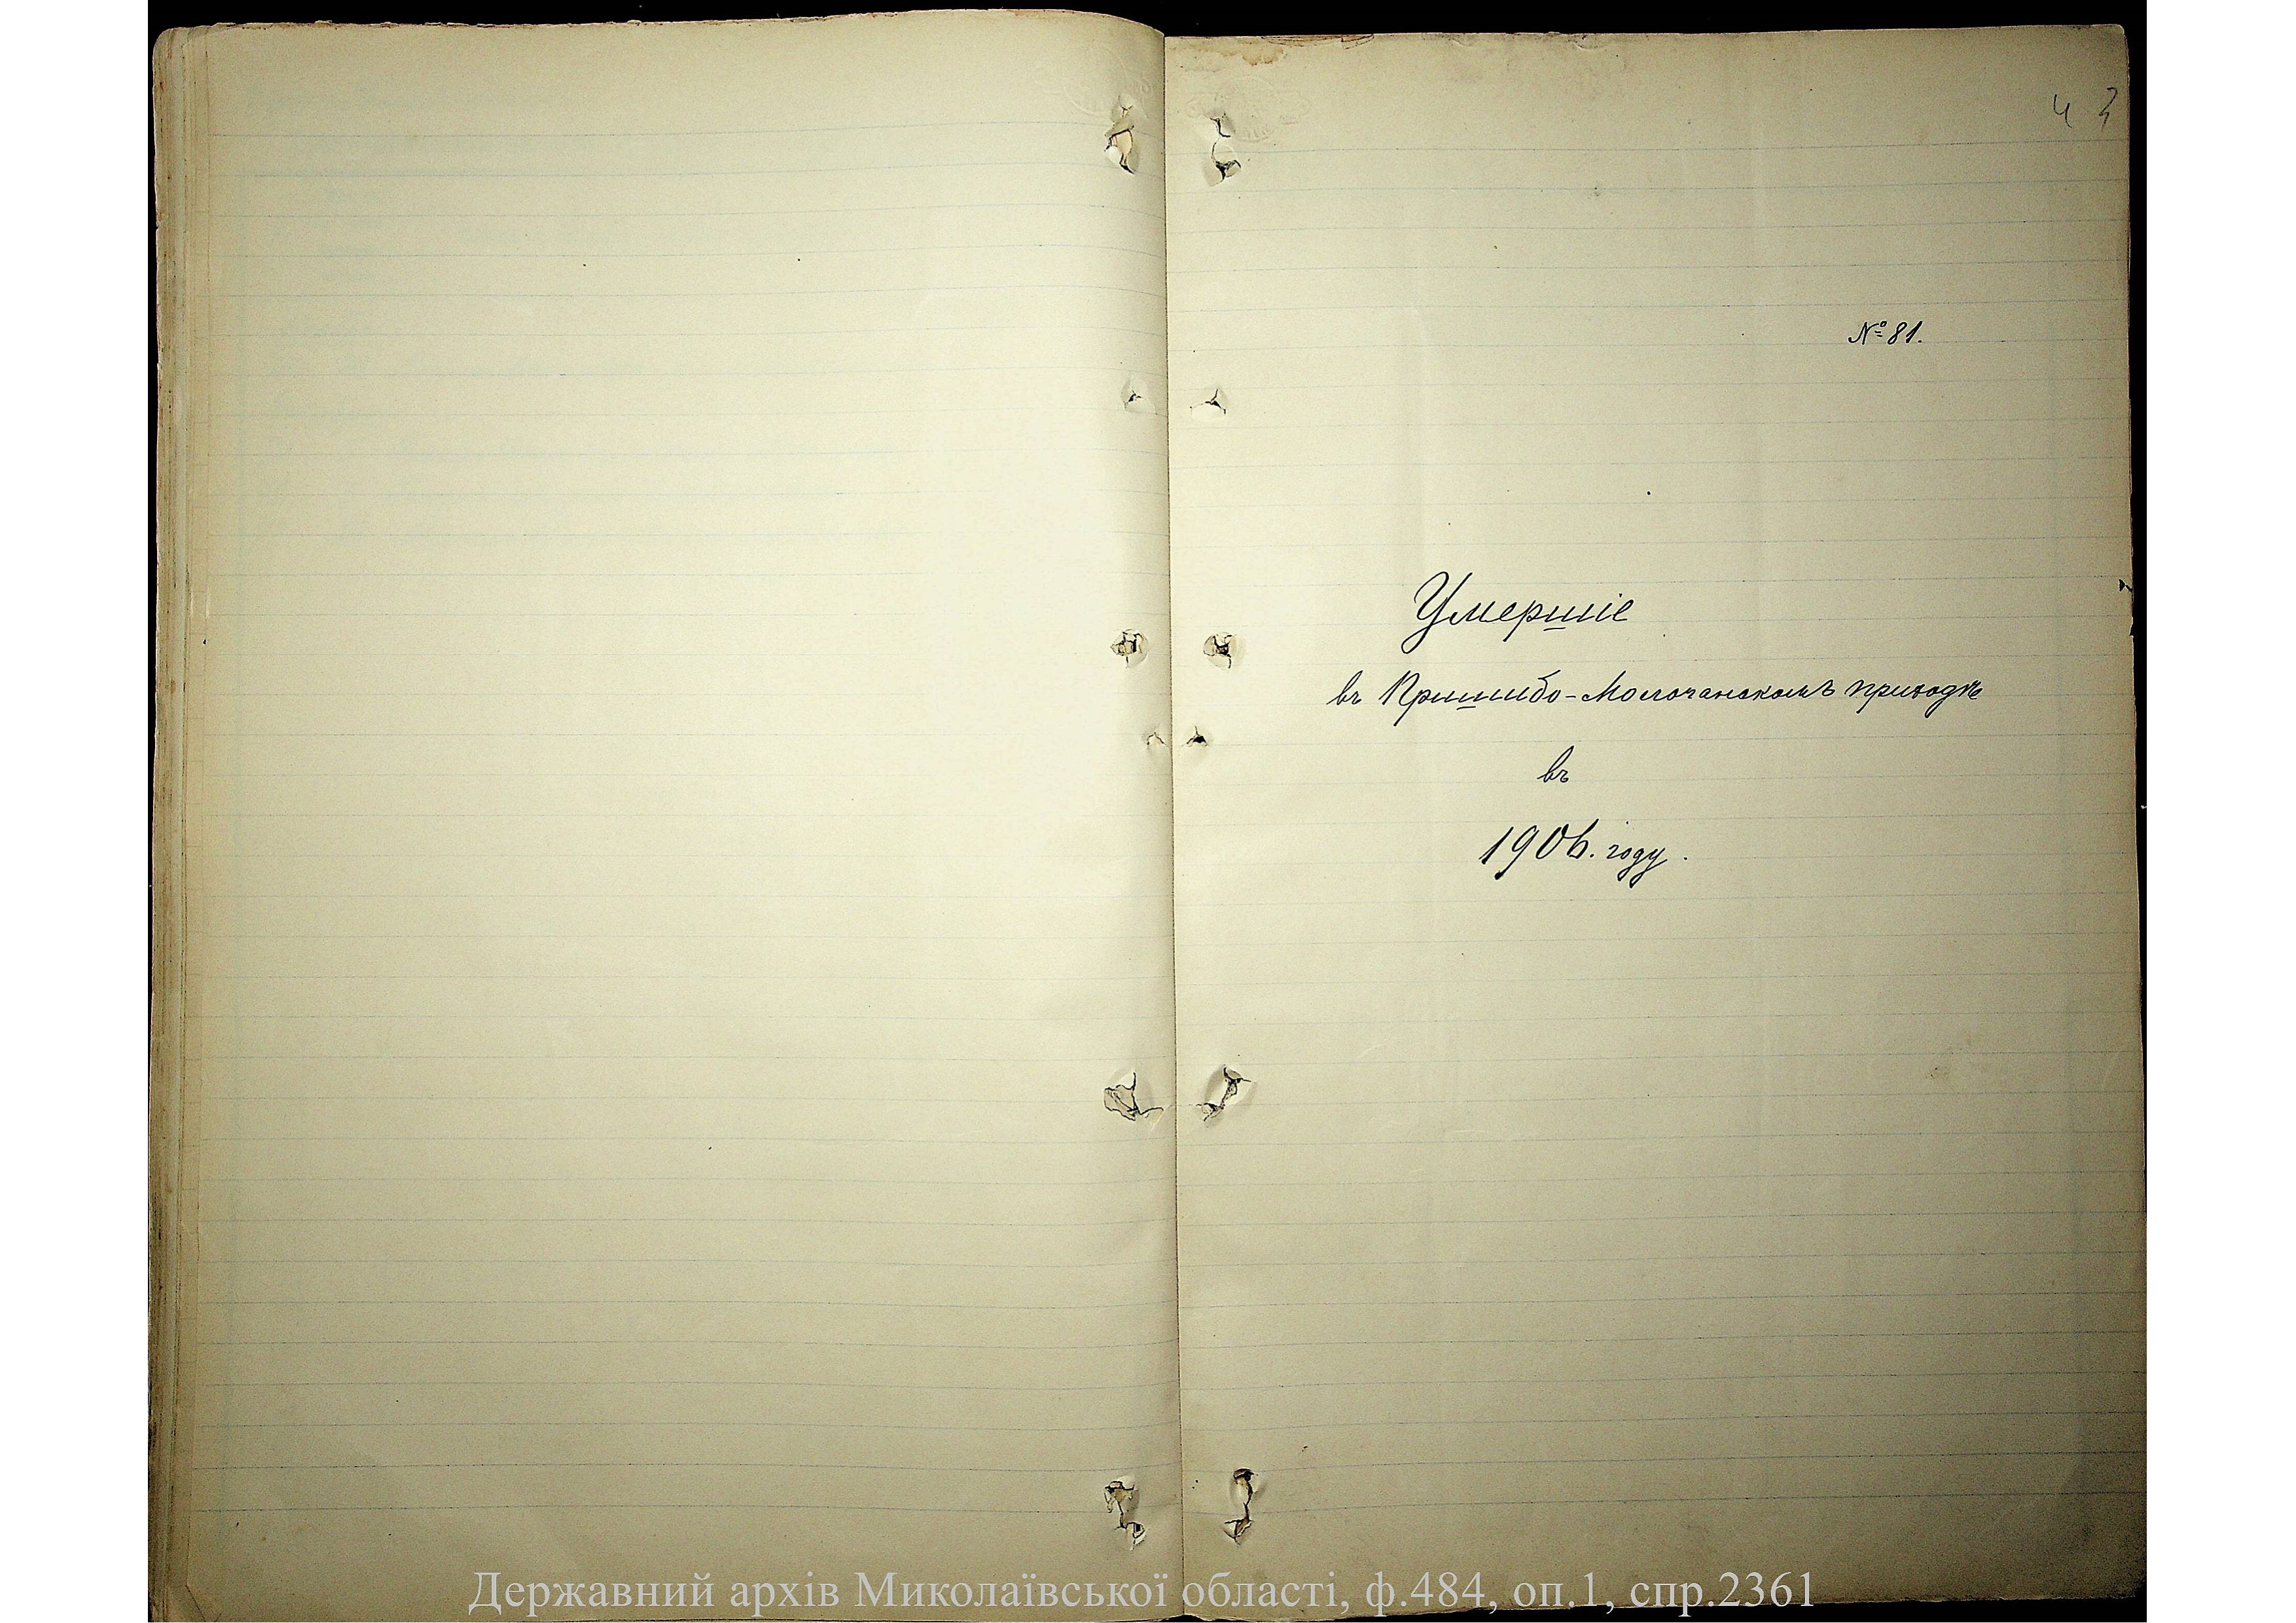 43
№ 81.
Умершіе
въ Пришибо-Молочанскомъ приходѣ
въ
1906. году.
Державний архів Миколаївської області, ф.484, оп.1, спр.2361